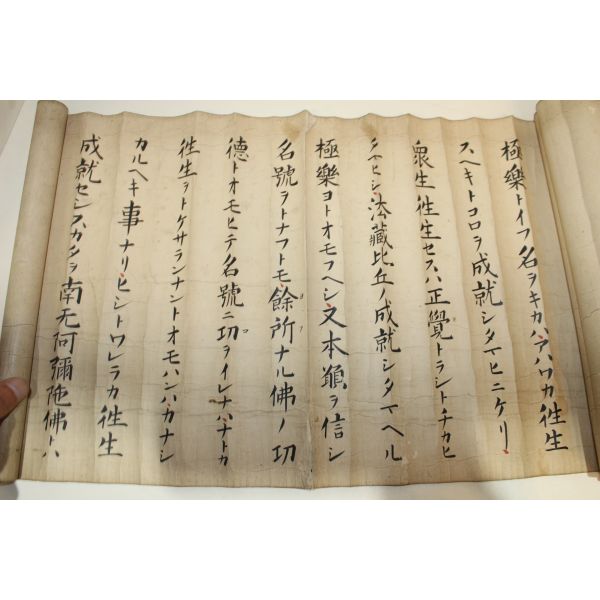 極樂トイフ名ヲキカハアハワカ徃生
スヘキトコロヲ成就シタマヒニケリ
衆生徃生セスハ正覺トラシトチカヒ
タマヒシ法藏比丘ノ成就シタマヘル
極樂ヨトオモフヘシ又本願ヲ信シ
名號ヲトナフトモ餘所ナル佛ノ功
德トオモヒテ名號ニ功ヲイレナハナトカ
徃生ヲトケサランナントオモハンハカナシ
カルヘキ事ナリヒシトワレラカ徃生
成就セシスカタヲ南无阿彌陁佛トハ